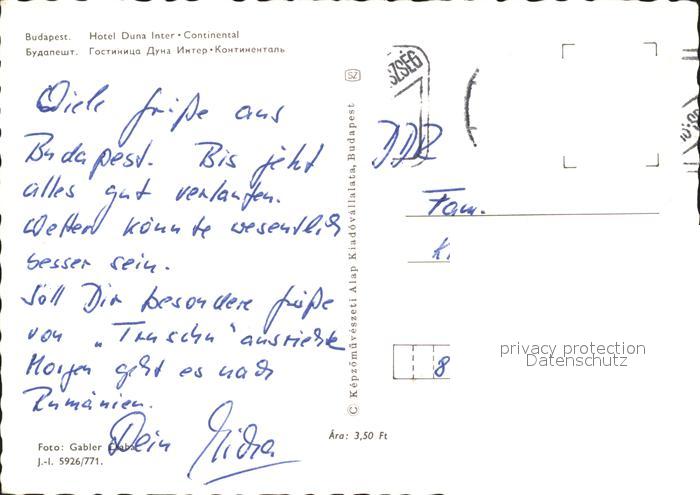 Budapest. Hotel Duna Inter • Continental
Будапешт. Гостиница Дуна Интер • Континенталь
Viele Grüße aus
Budapest. Bis jetzt
alles gut verlaufen.
Wetter könnte wesentlich
besser sein.
Soll Dir besondere Grüße
von „Truschu“ ausrichten
Morgen geht es nach
Rumänien.
Dein
Foto: Gabler
J.-I. 5926/771.
SZ
© Képzőművészeti Alap Kiadóvállalata, Budapest
Ára: 3,50 Ft
SZSÉG
DDR
Fam.
K.
8
privacy protection
Datenschutz